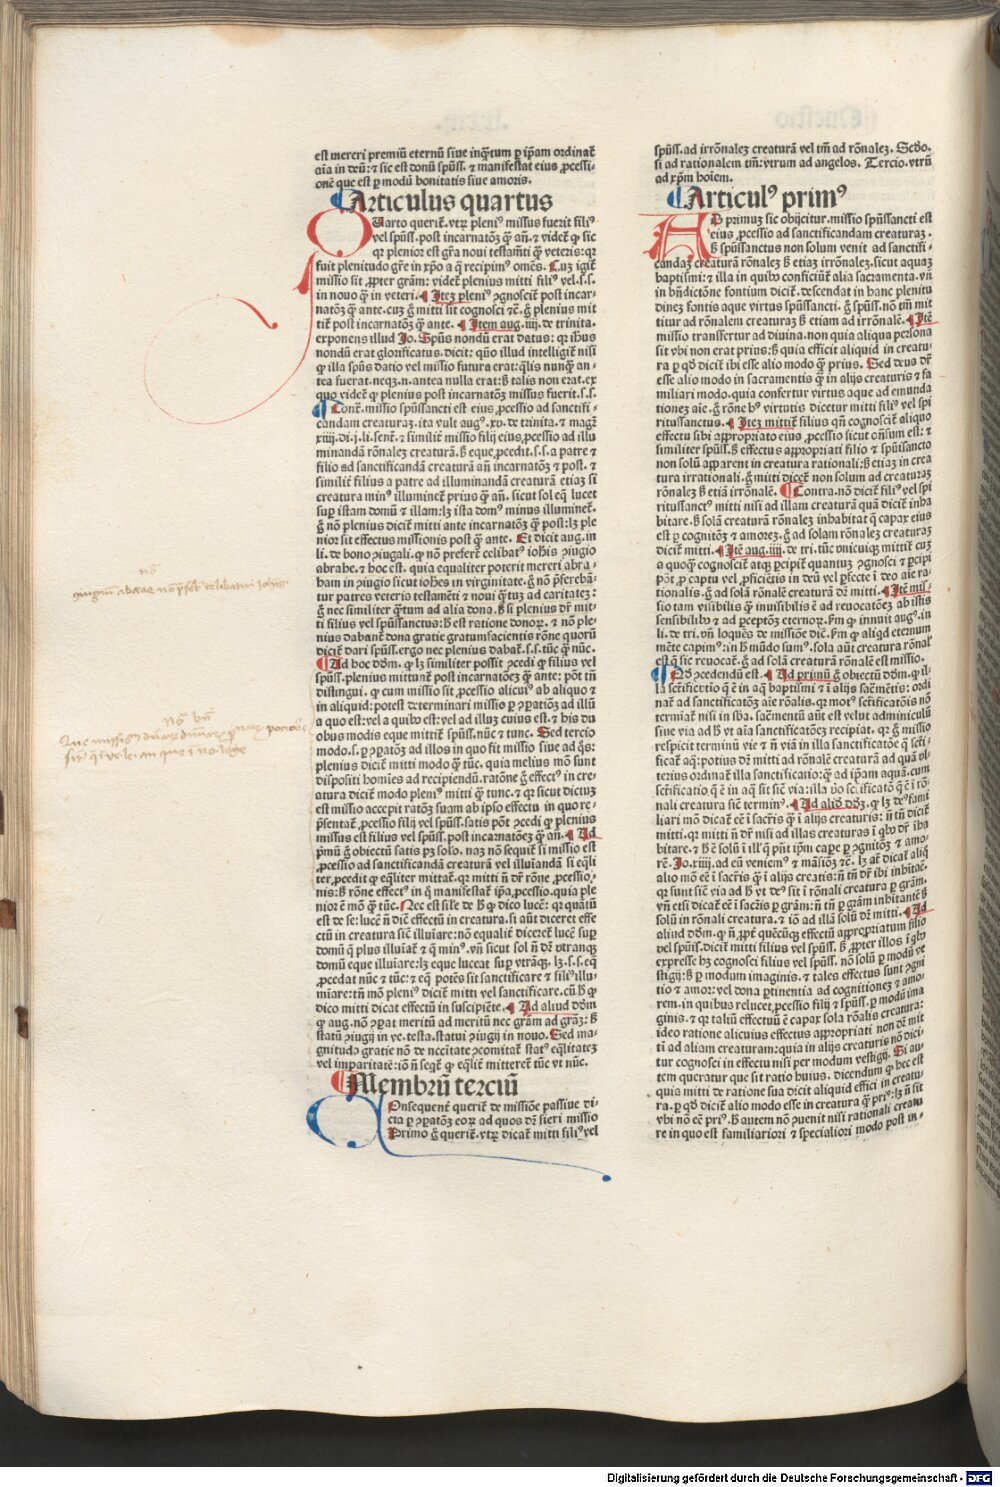 est mereri premiũ eternũ siue inq̃tum ꝑ ip̃am ordinat̃
aĩa in deũ: ⁊ sic est donũ spũss. ⁊ manifestat eius ꝓcessi-
onẽ que est ꝑ modũ bonitatis siue amoris.
Articulus quartus
Quarto querit̃. vtꝝ pleniꝰ missus fuerit filiꝰ
vel spũss. post incarnatõꝫ q̃ añ. ⁊ videt̃ ꝙ sic
qꝛ plenior est gr̃a noui testam̃ti q̃ veteris: qꝛ
fuit plenitudo gr̃e in xp̃o a q̃ recipimꝰ omẽs. Cuꝫ igit̃
missio sit ꝓpter grãm: videt̃ plenius mitti filiꝰ vel .s.s.
in nouo q̃ in veteri. Iteꝫ pleniꝰ ꝯgnoscit̃ post incar-
natõꝫ q̃ ante. cuꝫ g̃ mitti sit cognosci ⁊c̃. g̃ plenius mit
tit̃ post incarnatõꝫ q̃ ante. Item aug. iiij. de trinita.
exponens illud Jo. Spũs nondũ erat datus: qꝛ ihus
nondũ erat glorificatus. dicit: quõ illud intelligit̃ nisi
ꝙ illa spũs datio vel missio futura erat: q̃lis nunq̃ an-
tea fuerat. neqꝫ. n. antea nulla erat: ß talis non erat. ex
quo videt̃ ꝙ plenius post incarnatõꝫ missus fuerit .s.s.
Cont̃. missio spũssancti est eius ꝓcessio ad sanctifi-
candam creaturaꝫ. ita vult augꝰ. xv. de trinita. ⁊ magr̃
xiiij. di. j. li. sent̃. ⁊ similit̃ missio filij eius ꝓcessio ad illu
minandã rõnaleꝫ creaturã. ß eque ꝓcedit .s.s. a patre ⁊
filio ad sanctificandã creaturã añ incarnatõꝫ ⁊ post. ⁊
similit̃ filius a patre ad illuminandã creaturã etiaꝫ si
creatura minꝰ illuminet̃ priuo q̃ añ. sicut sol eq̃ lucet
suꝑ istam domũ ⁊ illam: lꝫ ista domꝰ minus illuminet̃.
g̃ nõ plenius dicit̃ mitti ante incarnatõꝫ q̃ post: lꝫ ple
nior sit effectus missionis post q̃ ante. Et dicit aug. in
li. de bono ꝯiugali. ꝙ nõ prefert̃ celibatꝰ iohis ꝯiugio
abrahe. ⁊ hoc est. quia equaliter poterit mereri abra-
ham in ꝯiugio sicut iohes in virginitate. g̃ nõ p̃ferebã-
tur patres veteris testamẽti ⁊ noui q̃tuꝫ ad caritateꝫ:
g̃ nec similiter q̃tum ad alia dona. ß si plenius dr̃ mit-
ti filius vel spũssanctus: ß est ratione donoꝝ. ⁊ nõ ple-
nius dabant̃ dona gratie gratumfacientis rõne quorũ
dicit̃ dari spũss. ergo nec plenius dabat̃ .s.s. tũc q̃ nũc.
Ad hoc dõm. ꝙ lꝫ similiter possit ꝯcedi ꝙ filius vel
spũss. plenius mittunt̃ post incarnatõeꝫ q̃ ante: põt tñ
distingui. ꝙ cum missio sit ꝓcessio alicuiꝰ ab aliquo ⁊
in aliquid: potest determinari missio ꝑ ꝯꝑatiõꝫ ad illũ
a quo est: vel a quibꝰ est: vel ad illuꝫ cuius est. ⁊ his du
obus modis eque mittit̃ spũss. nũc ⁊ tunc. Sed tercio
modo .s. ꝑ ꝯꝑatõꝫ ad illos in quo fit missio siue ad q̃s:
plenius dicit̃ mitti modo q̃ tũc. quia melius mõ sunt
dispositi homĩes ad recipiendũ. ratõne g̃ effectꝰ in cre-
atura dicit̃ modo pleniꝰ mitti q̃ tunc. ⁊ qꝛ sicut dictuꝫ
est missio accepit ratõꝫ suam ab ipso effectu in quo re-
p̃sentat̃ ꝓcessio filij vel spũss. satis põt ꝯcedi ꝙ plenius
missus est filius vel spũss. post incarnatõeꝫ q̃ añ. Ad
pm̃ũ g̃ obiectũ satis pꝫ solo. naꝫ nõ sequit̃ si missio est
ꝓcessio ad sanctificandã creaturã vel illuĩandã si eq̃li
ter ꝓcedit ꝙ eq̃liter mittat̃. qꝛ mitti ñ dr̃ rõne ꝓcessio-
nis: ß rõne effectꝰ in q̃ manifestat̃ ip̃a ꝓcessio. quia ple
nior ẽ mõ q̃ tũc. Nec est sil̃e de ß ꝙ dico lucẽ: qꝛ quãtũ
est de se: lucẽ ñ diẽ effectũ in creatura. si aũt diceret effe
ctũ in creatura siẽ illuĩare: nõ equalit̃ diceret̃ lucẽ suꝑ
domũ q̃ plus illuĩat̃ ⁊ q̃ minꝰ. vñ sicut sol ñ dr̃ vtranqꝫ
domũ eque illuĩare: lꝫ eque luceat suꝑ vtrãqꝫ. lꝫ .s.s. eq̃
ꝓcedat nũc ⁊ tũc: ⁊ eq̃ potẽs sit sanctificare ⁊ filiꝰ illu-
mĩare: tñ mõ pleniꝰ dicit̃ mitti vel sanctificare. cũ ß ꝙ
dico mitti dicat effectũ in suscipiẽte. Ad aliud dõm
ꝙ aug. nõ ꝯꝑat meritũ ad meritũ nec grãm ad grãꝫ: ß
statũ ꝯiugij in ve. testa. statui ꝯiugij in nouo. Sed ma-
gnitudo gratie nõ de nec̃itate ꝯcomitat̃ statꝰ eq̃litateꝫ
vel imparitatẽ: iõ ñ seqt̃ ꝙ eq̃lit̃ mitteret̃ tũc vt nũc.
Membrũ terciũ
Consequent̃ querit̃ de missiõe passiue di-
cta ꝑ ꝯꝑatõꝫ eoꝝ ad quos dr̃ fieri missio
Primo g̃ querit̃. vtꝝ dicat̃ mitti filiꝰ vel
spũss. ad irrõnaleꝫ creaturã vel tm̃ ad rõnaleꝫ. Scdo.
si ad rationalem tm̃: vtrum ad angelos. Tercio. vtrũ
ad xp̃m hoĩem.
Articulꝰ primꝰ
Ad primuꝫ sic obijcitur. missio spũssancti est
eius ꝓcessio ad sanctificandam creaturaꝫ.
ß spũssanctus non solum venit ad sanctifi-
candaꝫ creaturã rõnaleꝫ ß etiaꝫ irrõnaleꝫ. sicut aquaꝫ
baptismi: ⁊ illa in quibꝰ conficiũt̃ alia sacramenta. vñ
in bñdictõne fontium dicit̃. descendat in hanc plenitu
dineꝫ fontis aque virtus spũssancti. g̃ spũss. nõ tm̃ mit
titur ad rõnalem creaturaꝫ ß etiam ad irrõnalẽ. Itẽ
missio transfertur ad diuina. non quia aliqua persona
sit vbi non erat prius: ß quia efficit aliquid in creatu-
ra ꝑ qd̃ dicit̃ ibi esse alio modo q̃ prius. Sed deus dr̃
esse alio modo in sacramentis q̃ in alijs creaturis ⁊ fa
miliari modo. quia confertur virtus aque ad emunda
tioneꝫ aĩe. g̃ rõne hꝰ virtutis dicetur mitti filiꝰ vel spi
ritussanctus. Iteꝫ mittit̃ filius qñ cognoscit̃ aliquo
effectu sibi apꝓpriato eius ꝓcessio sicut oñsum est: ⁊
similiter spũss. ß effectus apꝓpriati filio ⁊ spũisancto
non solũ apparent in creatura rationali: ß etiaꝫ in crea
tura irrationali. g̃ mitti dicet̃ non solum ad creaturaꝫ
rõnaleꝫ ß etiã irrõnalẽ. Contra. nõ dicit̃ filiꝰ vel spi
ritussanctꝰ mitti nisi ad illam creaturã quã dicit̃ inha
bitare. ß solã creaturã rõnaleꝫ inhabitat q̃ capax eius
est ꝑ cognitõꝫ ⁊ amoreꝫ. g̃ ad solam rõnaleꝫ creaturaꝫ
dicit̃ mitti. Itẽ aug. iiij. de tri. tũc vnicuiqꝫ mittit̃ cuꝫ
a quoqꝫ cognoscit̃ atqꝫ ꝑcipit̃ quantuꝫ ꝯgnosci ⁊ ꝑcipi
põt. ꝓ captu vel ꝓficiẽtis in deũ vel ꝑfecte ĩ deo aĩe ra-
tionalis. g̃ ad solã rõnalẽ creaturã dr̃ mitti. Itẽ mis-
sio tam visibilis q̃ inuisibilis ẽ ad reuocatõeꝫ ab istis
sensibilibꝰ ⁊ ad ꝑceptõeꝫ eternoꝝ. ẜm ꝙ innuit augꝰ. in
li. de tri. vñ loquẽs de missiõe diẽ. ẜm ꝙ aliqd̃ eternum
mẽte capimꝰ: in ß mũdo sumꝰ. sola aũt creatura rõnal
est q̃ sic reuocat̃. g̃ ad solã creaturã rõnalẽ est missio.
Qd̃ ꝯcedendũ est. Ad primũ g̃ obiectũ dõm. ꝙ il-
la sc̃tificatio q̃ ẽ in aq̃ baptismi ⁊ ĩ alijs sac̃mẽtis: ordi
nat̃ ad sanctificatõꝫ aĩe rõalis. qꝛ motꝰ sc̃tificatõis nõ
terminat̃ nisi in sb̃a. sac̃mentũ aũt est velut adminiculũ
siue via ad ß vt aĩa sanctificatõeꝫ recipiat. qꝛ g̃ missio
respicit terminũ vie ⁊ ñ viã in illa sanctificatõe q̃ sc̃ti-
ficat̃ aq̃: potius dr̃ mitti ad rõnalẽ creaturã ad quã vl-
terius ordinat̃ illa sanctificatio: q̃ ad ip̃am aquã. cum
sc̃tificatio q̃ ẽ in aq̃ sit siẽ via: illa ꝟo sc̃ificatõ q̃ ẽ ĩ rõ
nali creatura siẽ terminꝰ. Ad aliđ dõꝫ. ꝙ lꝫ deꝰ fami
liari mõ dicat̃ eẽ ĩ sac̃ris q̃ ĩ alijs creaturis: ñ tñ dicit̃
mitti. qꝛ mitti ñ dr̃ nisi ad illas creaturas ĩ qbꝰ dr̃ iha
bitare. ⁊ ß ẽ solũ ĩ ill̃ q̃ pñt ip̃m caꝑe ꝑ ꝯgnitõꝫ ⁊ amo-
rẽ. Jo. xiiij. ad eũ veniemꝰ ⁊ mãsiõꝫ ⁊c̃. lꝫ at̃ dicat̃ aliq̃
alio mõ eẽ ĩ sac̃ris q̃ ĩ alijs creatis: ñ tñ dr̃ ibi inhĩtaẽ.
qꝛ sunt siẽ via ad ß vt deꝰ sit ĩ rõnali creatura ꝑ grãm.
vñ etsi dicat̃ eẽ ĩ sac̃ris ꝑ grãm: ñ tñ ꝑ grãm inhitantẽ ß
solũ in rõnali creatura. ⁊ iõ ad illã solũ dr̃ mitti. Ad
aliud dõm. ꝙ ñ ꝓpt̃ quẽcũqꝫ effectũ apꝓpriatum filio
vel spũis. dicit̃ mitti filius vel spũss. ß ꝓpter illos ĩ qbꝰ
expresse hꝫ cognosci filius vel spũss. nõ solũ ꝑ modũ ve
stigij: ß ꝑ modum imaginis. ⁊ tales effectus sunt ꝯgni
tio ⁊ amor: vel dona ꝑtinentia ad cognitioneꝫ ⁊ amo-
rem. in quibus relucet ꝓcessio filij ⁊ spũss. ꝑ modũ ima
ginis. ⁊ qꝛ taliũ effectuũ ẽ capax sola rõalis creatura:
ideo ratione alicuius effectus apꝓpriati non dr̃ mit
ti ad aliam creaturam: quia in alijs creaturis nõ dici-
tur cognosci in effectu nisi per modum vestigij. Si au-
tem queratur que sit ratio huius. dicendum ꝙ hec est
quia mitti de ratione sua dicit aliquid effici in creatu
ra. ꝑ qd̃ dicit̃ alio modo esse in creatura q̃ priꝰ: lꝫ ñ sit
vbi nõ eẽ priꝰ. ß autem nõ ꝯuenit nisi rationali creatu
re in quo est familiariori ⁊ specialiori modo post in-
nõ
ꝯiugiũ abrae nõ p̃fert̃ celibatui iohis.
Nõ bñ
Digitalisierung gefördert durch die Deutsche Forschungsgemeinschaft - DFG